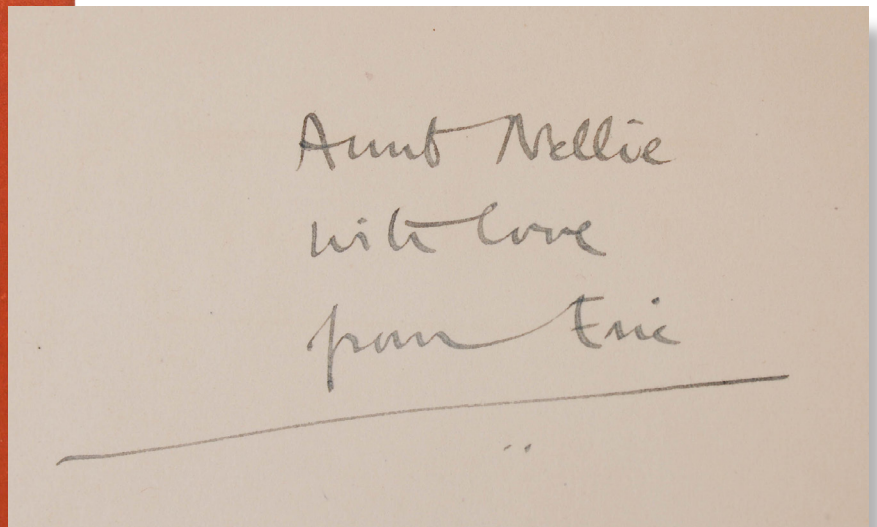 Aunt Nellie
with love
from Eric